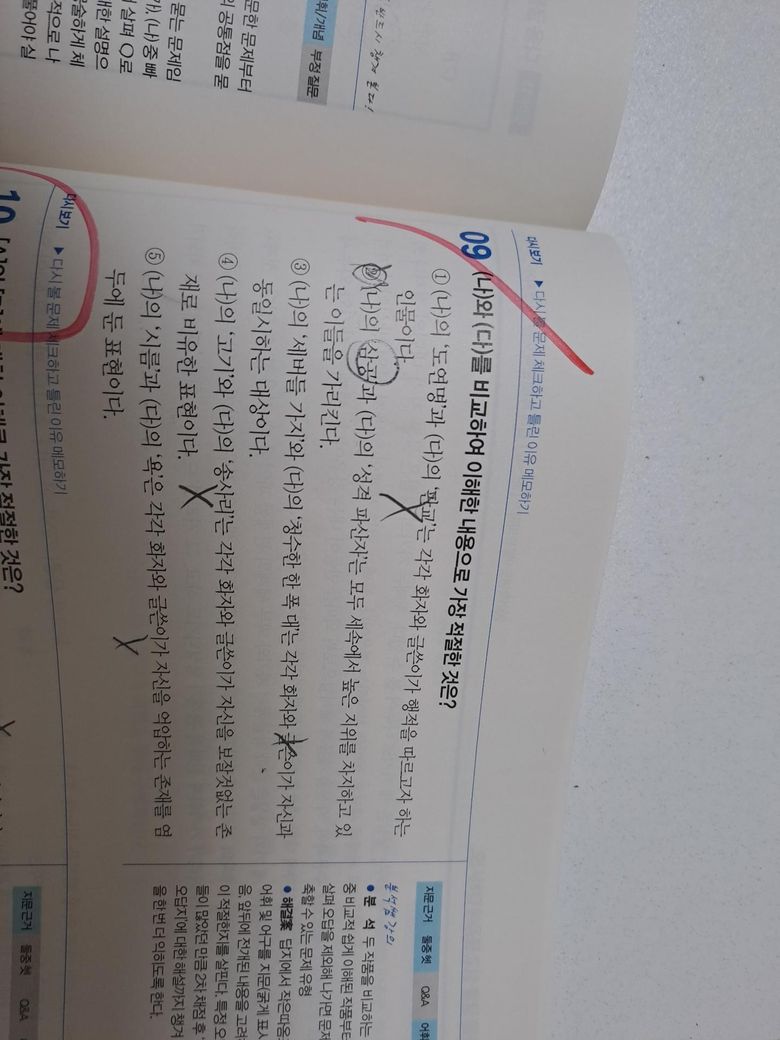 반드시 챙겨 본다!
휘/개념 부정 질문
문한 문제부터
의 공통점을 묻
묻는 문제임
가), (나) 중 빠
살펴 ○로
한 설명으
술하게 체
적으로 나
물어야 실
다시보기 ▶ 다시 볼 문제 체크하고 틀린 이유 메모하기
09 (나)와 (다)를 비교하여 이해한 내용으로 가장 적절한 것은?
① (나)의 '도연명'과 (다)의 '판교'는 각각 화자와 글쓴이가 행적을 따르고자 하는
인물이다.
② (나)의 '삼공'과 (다)의 '성격 파산자'는 모두 세속에서 높은 지위를 차지하고 있
는 이들을 가리킨다.
③ (나)의 '세버들 가지'와 (다)의 '청수한 한 폭 대'는 각각 화자와 글쓴이가 자신과
동일시하는 대상이다.
④ (나)의 '고기'와 (다)의 '송사리'는 각각 화자와 글쓴이가 자신을 보잘것없는 존
재로 비유한 표현이다.
⑤ (나)의 '시름'과 (다)의 '욕'은 각각 화자와 글쓴이가 자신을 억압하는 존재를 염
두에 둔 표현이다.
지문근거 둘중헷 Q&A 어휘
분석쌤 강의
● 분 석 두 작품을 비교하는
중 비교적 쉽게 이해된 작품부터
살펴 오답을 제외해 나가면 문제
축할 수 있는 문제 유형
● 해결案 답지에서 작은따옴
어휘 및 어구를 지문(굵게 표시
음 앞뒤에 전개된 내용을 고려
이 적절한지를 살핀다. 특정 오
들이 많았던 만큼 2차 채점 후
오답지에 대한 해설까지 챙겨
을 한 번 더 익히도록 한다.
다시보기 ▶ 다시 볼 문제 체크하고 틀린 이유 메모하기
10 가장 적절한 것은?
지문근거 둘중헷 Q&A